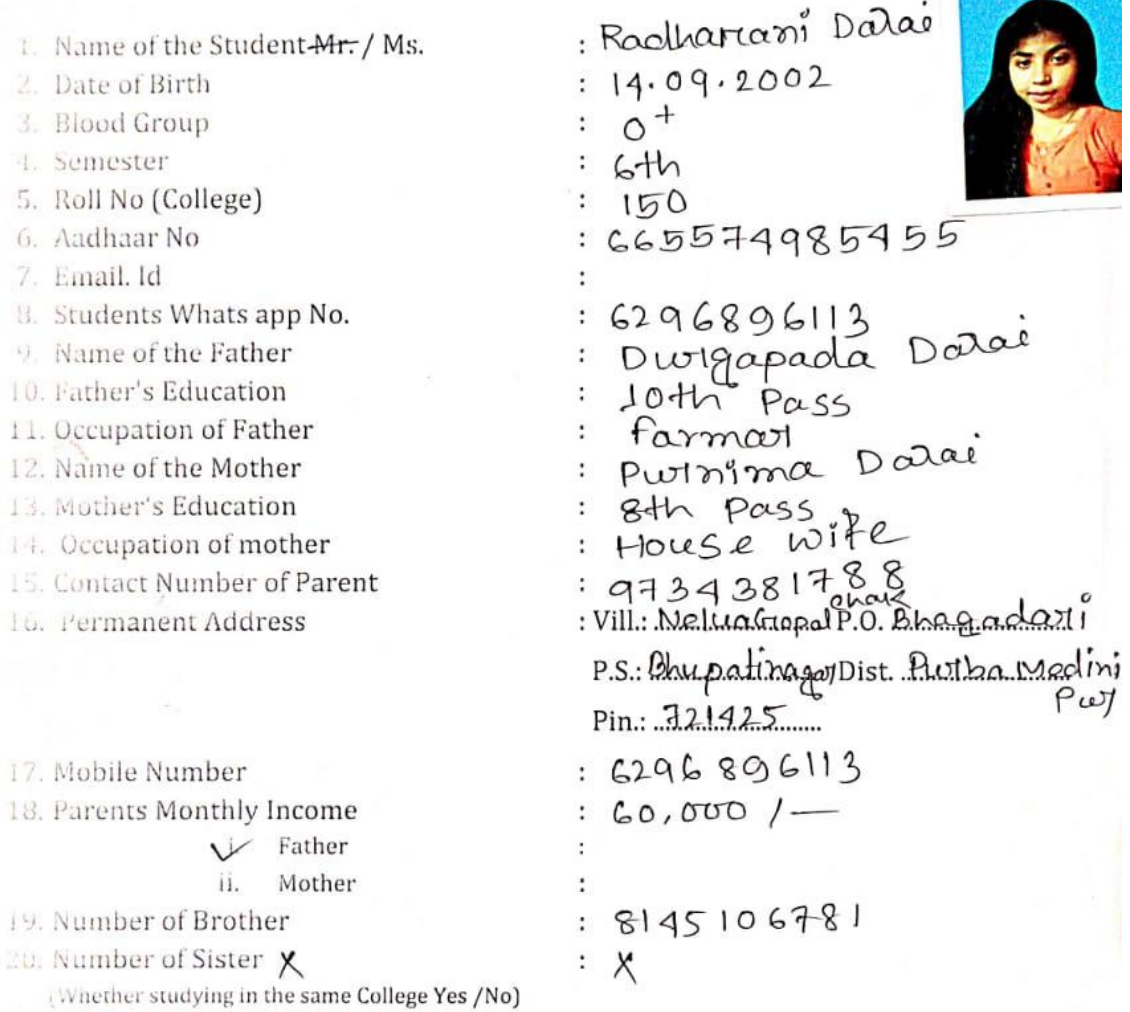 1. Name of the Student Mr. / Ms. : Radharani Dalai
2. Date of Birth : 14.09.2002
3. Blood Group : O+
4. Semester : 6th
5. Roll No (College) : 150
6. Aadhaar No : 665574985455
7. Email. Id :
8. Students Whats app No. : 6296896113
9. Name of the Father : Durgapada Dalai
10. Father's Education : 10th Pass
11. Occupation of Father : farmar
12. Name of the Mother : Purnima Dalai
13. Mother's Education : 8th Pass
14. Occupation of mother : House wife
15. Contact Number of Parent : 9734381788
16. Permanent Address : Vill.: NeluaGopal chak P.O. Bhagadari
P.S.: Bhupatinagar Dist. Purba Medini
Pur
Pin.: 721425
17. Mobile Number : 6296896113
18. Parents Monthly Income : 60,000 /—
i. Father :
ii. Mother :
19. Number of Brother : 8145106781
20. Number of Sister X : X
(Whether studying in the same College Yes /No)